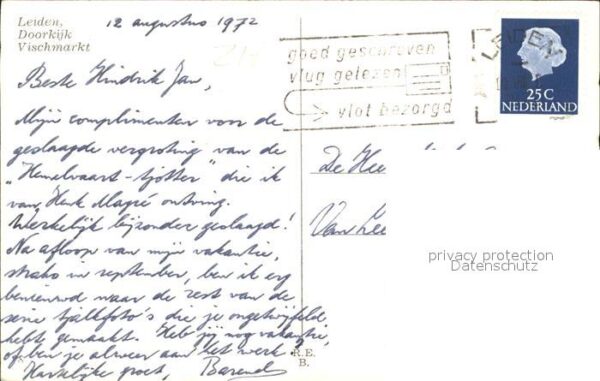 Leiden,
Doorkijk
Vischmarkt
12 augustus 1972
Beste Hindrik Jan,
Mijn complimenten voor de
geslaagde vergroting van de
"Hemelvaart-tjotter" die ik
van Henk Magré ontving.
Werkelijk bijzonder geslaagd!
Na afloop van mijn vakantie,
straks in september, ben ik erg
benieuwd waar de rest van de
serie tjallfoto's die je ongetwijfeld
hebt gemaakt. Heb jij nog vakantie,
of ben je alweer aan het werk?
Hartelijke groet, Barend
R.E.
B.
goed geschreven
vlug gelezen
vlot bezorgd
LEIDEN
25 C
NEDERLAND
De Hee
Van
privacy protection
Datenschutz